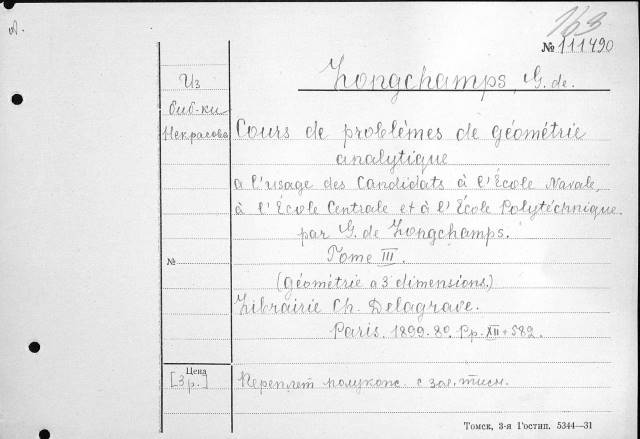 163
№ 111490
Longchamps, G. de.
Из
биб-ки
Некрасова
Cours de problèmes de géométrie
analytique
a l'usage des Candidats à l'École Navale,
à l'École Centrale et à l'École Polytéchnique.
par G. de Longchamps.
Tome III.
№
(géométrie a 3 dimensions.)
Librairie Ch. Delagrave.
Paris. 1899. 8º. Pp. XII + 582.
Цена
[3 р.]
Переплет полукож. с зол. тисн.
Томск, 3-я Гостип. 5344—31